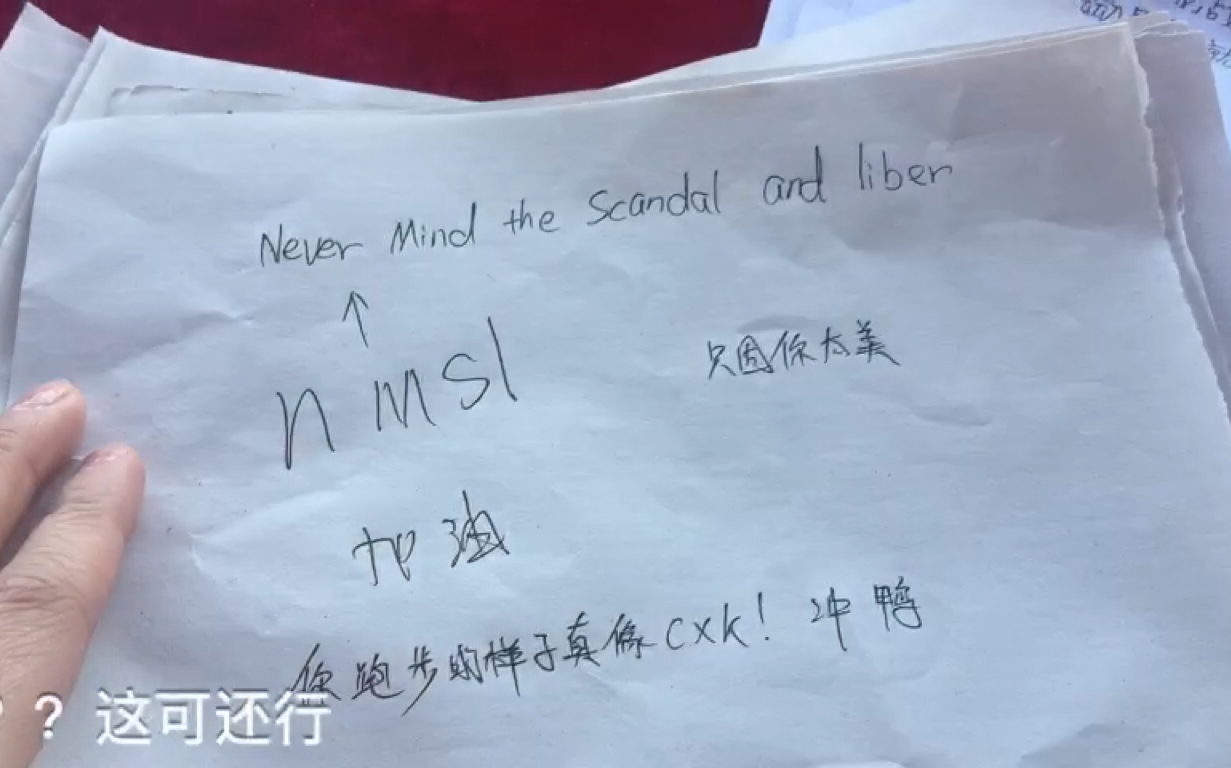 Never Mind the Scandal and liber
↑
nmsl
只因你太美
加油
你跑步的样子真像cxk！冲鸭
？这可还行